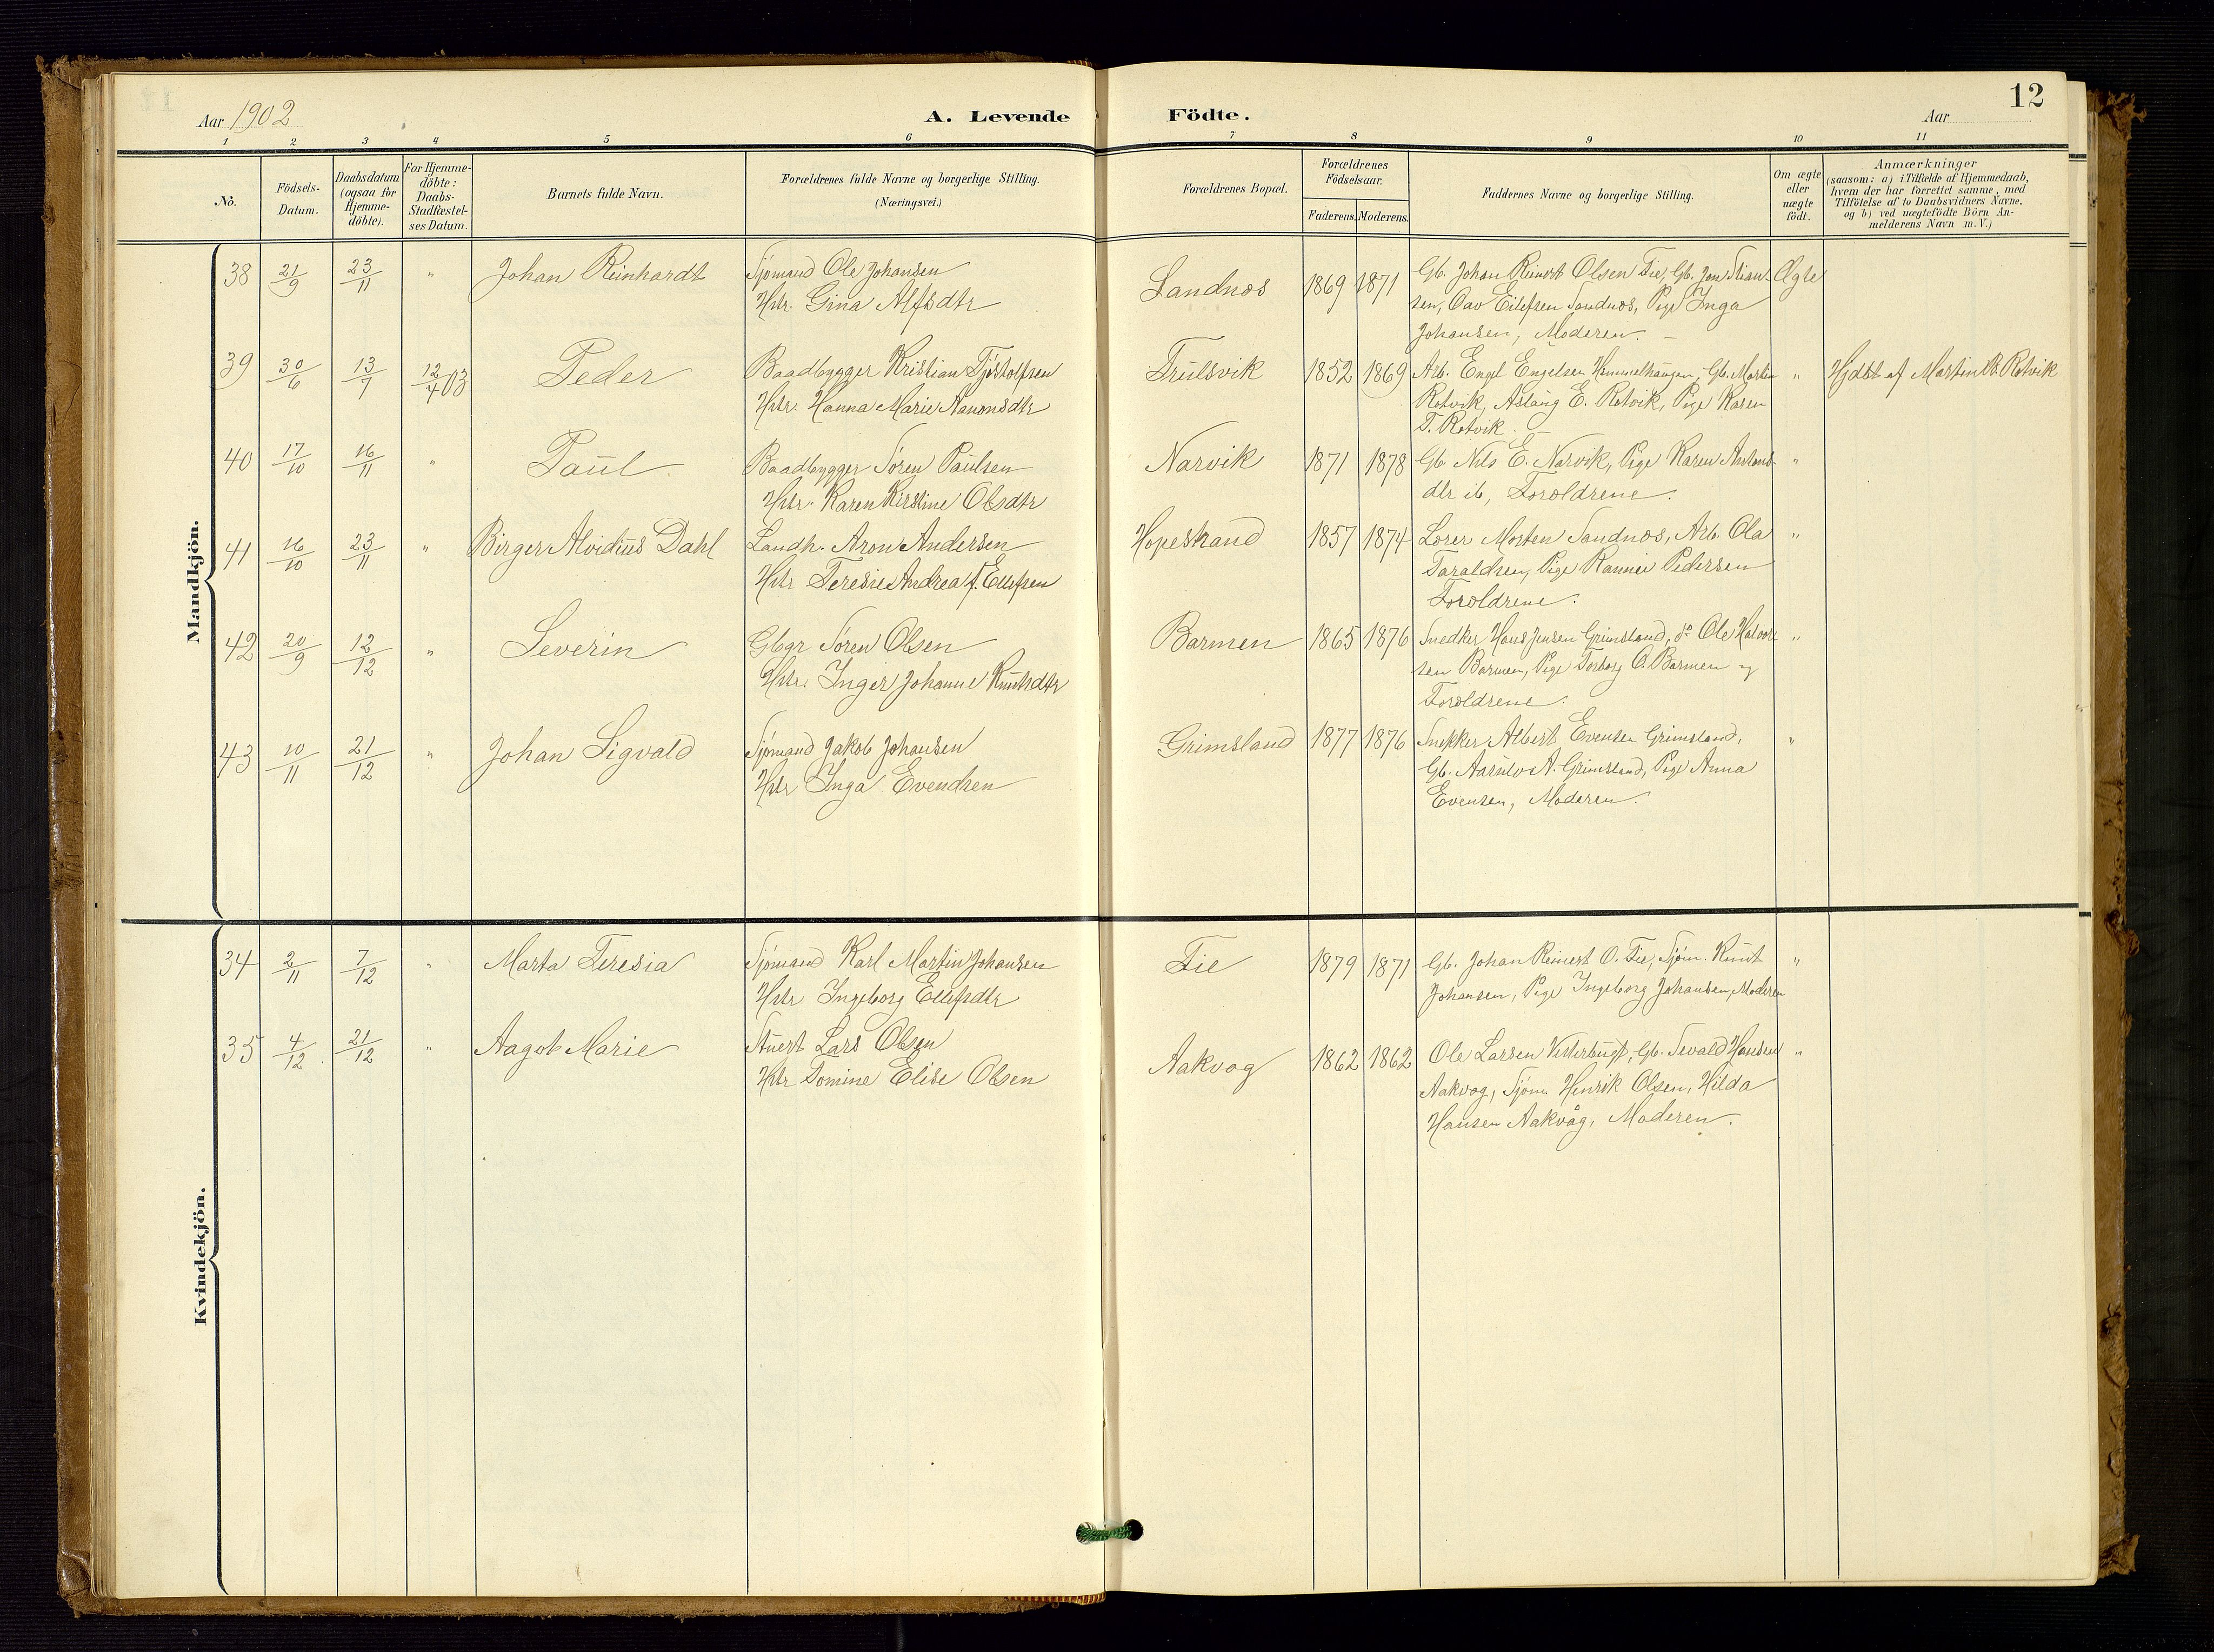 12
Aar 1902
A. Levende Födte.
Aar
1 2 3 4 5 6 7 8 9 10 11
No.
Födsels-Datum.
Daabsdatum (ogsaa for Hjemme-döbte).
For Hjemme-döbte: Daabs-Stadfæstel-ses Datum.
Barnets fulde Navn.
Forældrenes fulde Navne og borgerlige Stilling.
(Næringsvei.)
Forældrenes Bopæl.
Forældrenes Födselsaar.
Faderens. Moderens.
Faddernes Navne og borgerlige Stilling.
Om ægte eller uægte födt.
Anmærkninger
(saasom: a) i Tilfælde af Hjemmedaab,
hvem der har forrettet samme, med
Tilföielse af to Daabsvidners Navne,
og b) ved uægtefödte Börn An-
melderens Navn m.V.)
Mandkjön.
38 21/9 23/11 " Johan Reinhardt Sjømand Ole Johansen Sandnæs 1869 1871 Gb. Johan Reinert Olsen Fie, Gb. Jens Stian- Ægte
Hstr. Gina Alfsdtr sen, Oav Eilefsen Sandnæs, Pige Inga
Johansen, Moderen.
39 30/6 13/7 12/4 03 Peder Baadbygger Kristian Tjøstolfsen Trulsvik 1852 1869 Arb. Engel Engelsen Hammelhaugen, Gb. Martin " Hjdbt af Martin Rotvik
Hstr. Hanna Marie Aanonsdtr Rotvik, Aslaug E. Rotvik, Pige Karen
T. Rotvik.
40 17/10 16/11 " Paul Baadbygger Søren Paulsen Narvik 1871 1878 Gb. Nils E. Narvik, Pige Karen "
Hstr. Karen Kirstine Olsdtr dtr ib, Forældrene.
41 16/10 23/11 " Birger Alvidius Dahl Landh. Aron Andersen Hopestrand 1857 1874 Lærer Morten Sandnæs, Arb. Ola "
Hstr Teresie Andrea f. Ellefsen Taraldsen, Pige Rannei Pedersen
Forældrene.
42 20/9 12/12 " Severin Gbgr Søren Olsen Barmen 1865 1876 Snedker Hans Jensen Grimsland, do Ole Halvor- "
Hstr. Inger Johanne Knutsdtr sen Barmen, Pige Torborg O. Barmen og
Forældrene.
43 10/11 21/12 " Johan Sigvald Sjømand Jakob Johansen Grimsland 1877 1876 Snekker Albert Evensen Grimsland, "
Hstr Inga Evendsen Gb. Aasulv A. Grimsland, Pige Anna
Evensen, Moderen.
Kvindekjön.
34 2/11 7/12 " Marta Teresia Sjømand Karl Martin Johansen Fie 1879 1871 Gb. Johan Reinert O. Fie, Sjøm. Knut "
Hstr. Ingeborg Ellefsdtr Johansen, Pige Ingeborg Johansen, Moderen
35 4/12 21/12 " Aagot Marie Stuert Lars Olsen Aakvag 1862 1862 Ole Larsen Vesterbugt, Gb. Sevald Hansen "
Hstr Tomine Elise Olsen Aakvag, Sjøm. Henrik Olsen, Hilda
Hansen Aakvåg, Moderen.